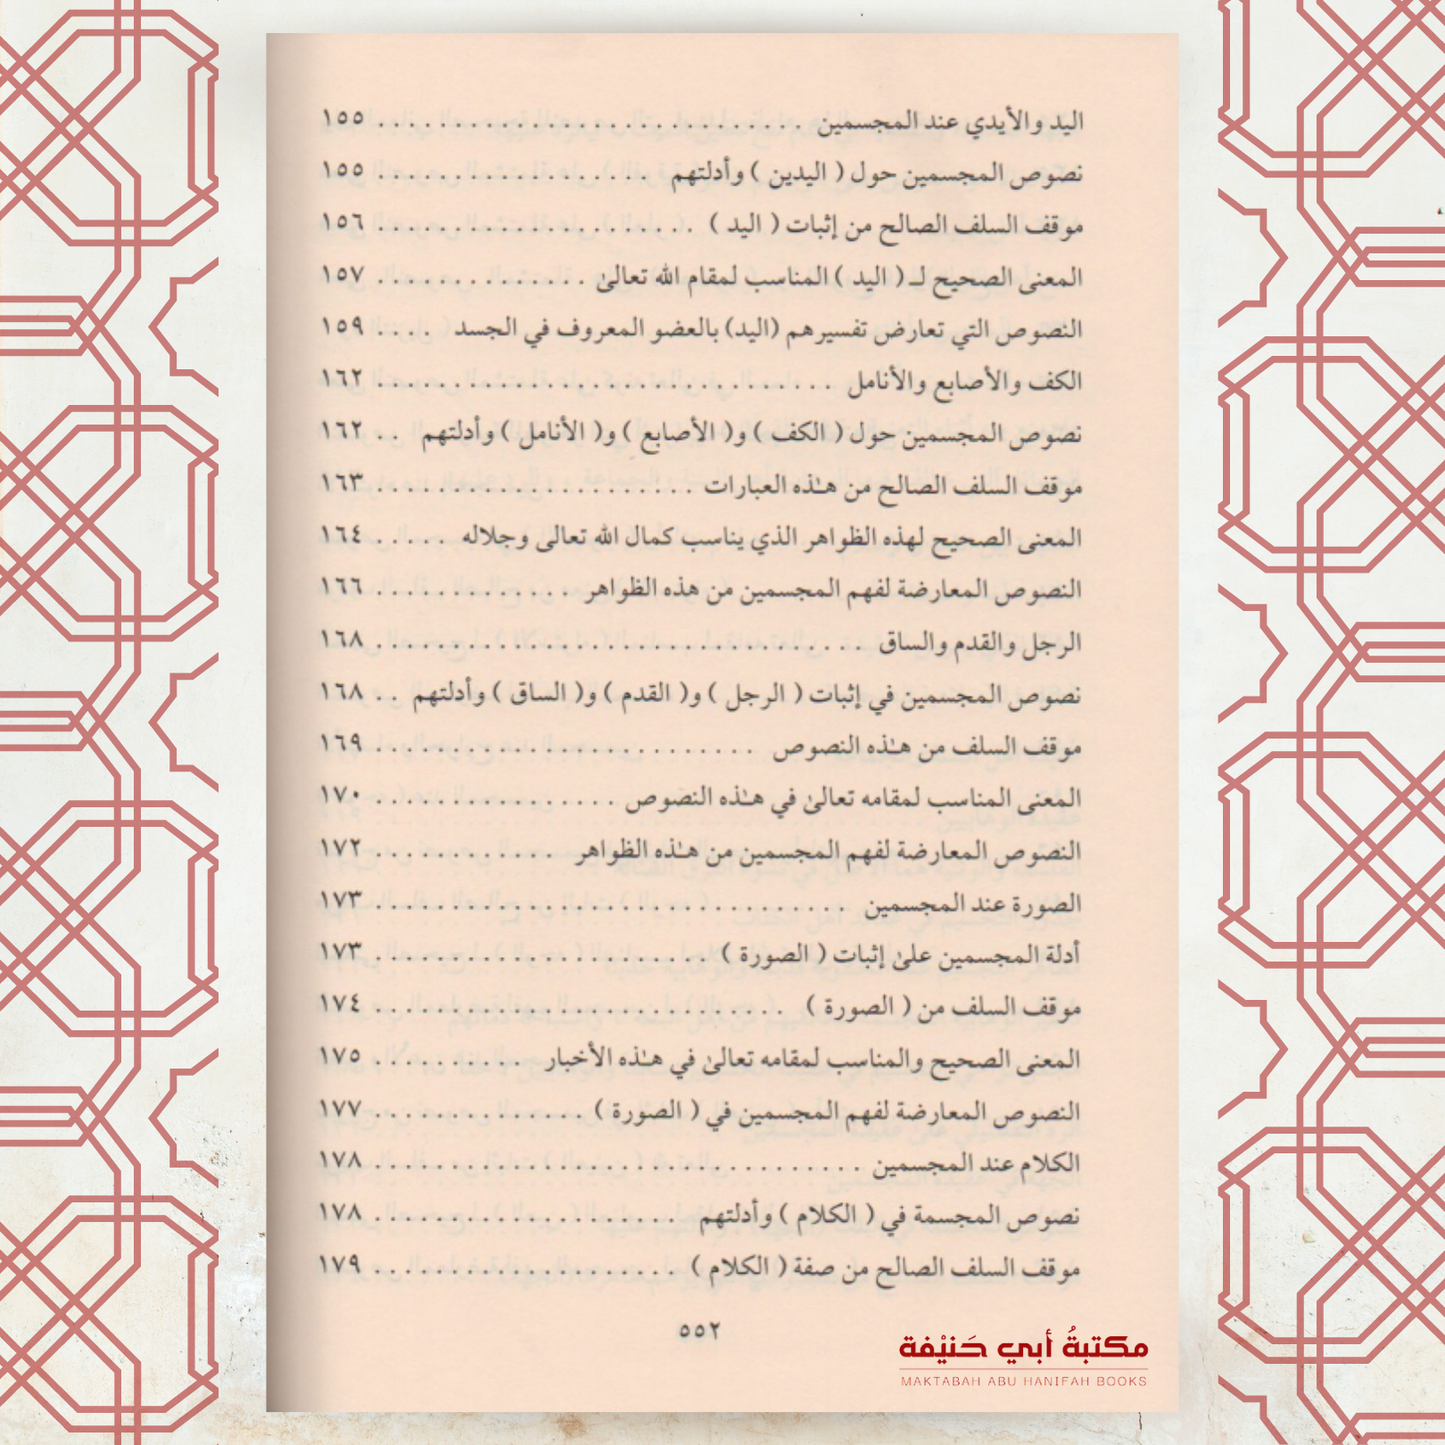 اليد والأيدي عند المجسمين . . . . . . . . . . . . . . . . . . . . . . . . . . . . ١٥٥
نصوص المجسمين حول ( اليدين ) وأدلتهم . . . . . . . . . . . . . . . . . . ١٥٥
موقف السلف الصالح من إثبات ( اليد ) . . . . . . . . . . . . . . . . . . . . . ١٥٦
المعنى الصحيح لـ ( اليد ) المناسب لمقام الله تعالىٰ . . . . . . . . . . . . . . ١٥٧
النصوص التي تعارض تفسيرهم (اليد) بالعضو المعروف في الجسد . . . . ١٥٩
الكف والأصابع والأنامل . . . . . . . . . . . . . . . . . . . . . . . . . . . . . . ١٦٢
نصوص المجسمين حول ( الكف ) و( الأصابع ) و( الأنامل ) وأدلتهم . . ١٦٢
موقف السلف الصالح من هـٰذه العبارات . . . . . . . . . . . . . . . . . . . . . ١٦٣
المعنى الصحيح لهذه الظواهر الذي يناسب كمال الله تعالى وجلاله . . . . . ١٦٤
النصوص المعارضة لفهم المجسمين من هذه الظواهر . . . . . . . . . . . . . ١٦٦
الرجل والقدم والساق . . . . . . . . . . . . . . . . . . . . . . . . . . . . . . . . ١٦٨
نصوص المجسمين في إثبات ( الرجل ) و( القدم ) و( الساق ) وأدلتهم . . ١٦٨
موقف السلف من هـٰذه النصوص . . . . . . . . . . . . . . . . . . . . . . . . . ١٦٩
المعنى المناسب لمقامه تعالىٰ في هـٰذه النصوص . . . . . . . . . . . . . . . . ١٧٠
النصوص المعارضة لفهم المجسمين من هـٰذه الظواهر . . . . . . . . . . . . ١٧٢
الصورة عند المجسمين . . . . . . . . . . . . . . . . . . . . . . . . . . . . . . . ١٧٣
أدلة المجسمين علىٰ إثبات ( الصورة ) . . . . . . . . . . . . . . . . . . . . . . ١٧٣
موقف السلف من ( الصورة ) . . . . . . . . . . . . . . . . . . . . . . . . . . . ١٧٤
المعنى الصحيح والمناسب لمقامه تعالىٰ في هـٰذه الأخبار . . . . . . . . . . ١٧٥
النصوص المعارضة لفهم المجسمين في ( الصورة ) . . . . . . . . . . . . . . ١٧٧
الكلام عند المجسمين . . . . . . . . . . . . . . . . . . . . . . . . . . . . . . . . ١٧٨
نصوص المجسمة في ( الكلام ) وأدلتهم . . . . . . . . . . . . . . . . . . . . ١٧٨
موقف السلف الصالح من صفة ( الكلام ) . . . . . . . . . . . . . . . . . . . . ١٧٩
٥٥٢
مكتبةُ أبي حَنيْفة
MAKTABAH ABU HANIFAH BOOKS